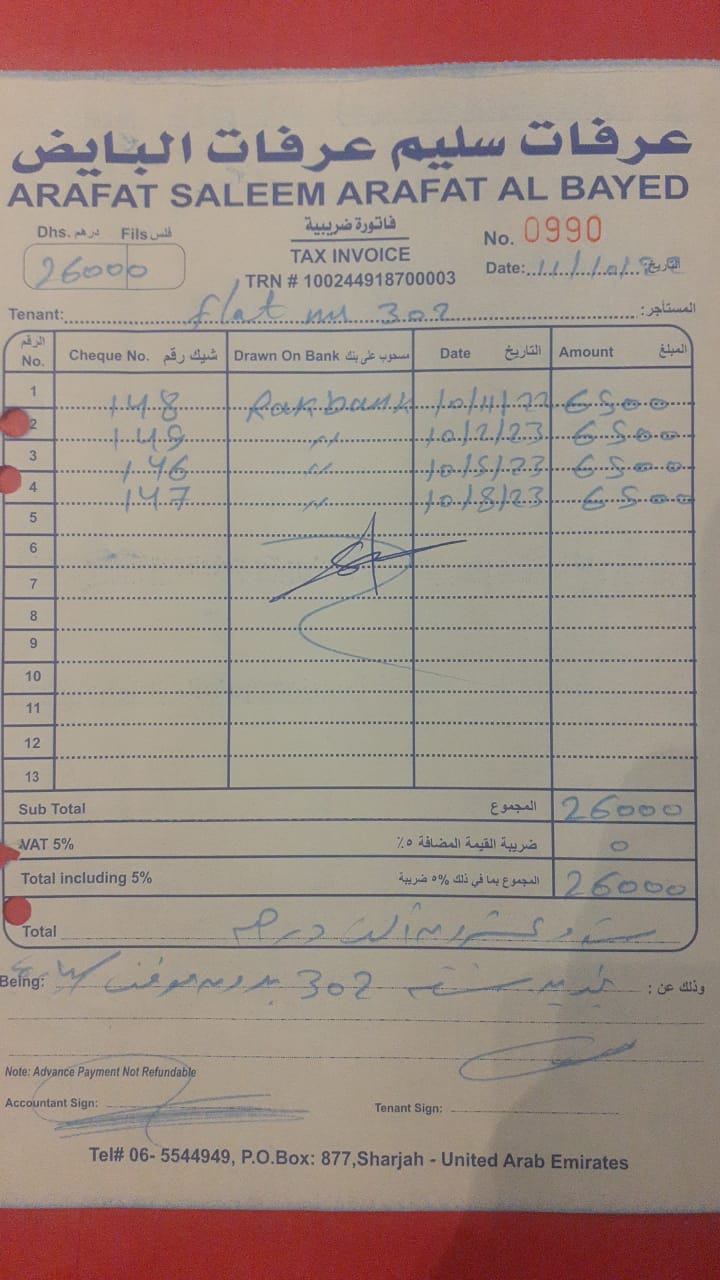 عرفات سليم عرفات البايض
ARAFAT SALEEM ARAFAT AL BAYED
Dhs. درهم Fils فلس
26000
فاتورة ضريبية
TAX INVOICE
TRN # 100244918700003
No. 0990
Date: 11/10/ التاريخ:
Tenant: flat no 302 المستأجر:
الرقم No. Cheque No. شيك رقم Drawn On Bank مسحوب على بنك Date التاريخ Amount المبلغ
1 148 Rakbank 10/11/22 6500
2 149 〃 10/2/23 6500
3 146 〃 10/5/23 6500
4 147 〃 10/8/23 6500
5
6
7
8
9
10
11
12
13
Sub Total المجموع 26000
VAT 5% ضريبة القيمة المضافة ٥٪ 0
Total including 5% المجموع بما في ذلك ٥% ضريبة 26000
Total ستة وعشرون ألف درهم
Being: تجديد سنة 302 بدون موقف وذلك عن :
Note: Advance Payment Not Refundable
Accountant Sign: Tenant Sign:
Tel# 06- 5544949, P.O.Box: 877,Sharjah - United Arab Emirates